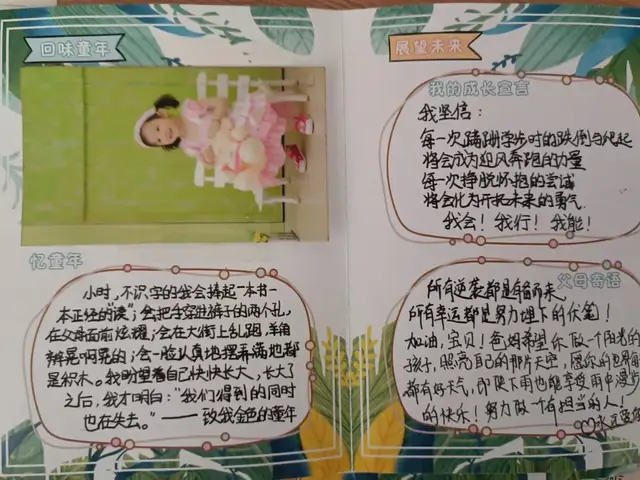 回味童年
忆童年
小时，不识字的我会捧起一本书一
本正经的“读”；会把手穿进裤子的两个孔，
在父母面前炫耀；会在大街上乱跑，羊角
辫晃啊晃的；会一脸认真地摆弄满地都
是积木。我盼望着自己快快长大，长大了
之后，我才明白：“我们得到的同时
也在失去。”——致我金色的童年
展望未来
我的成长宣言
我坚信：
每一次蹒跚学步时的跌倒与爬起
将会成为迎风奔跑的力量
每一次挣脱怀抱的尝试
将会化为开拓未来的勇气
我会！我行！我能！
父母寄语
所有逆袭都是有备而来，
所有幸运都是努力埋下的伏笔！
加油，宝贝！爸妈希望你做一个阳光的
孩子，照亮自己的那片天空，愿你的世界每天
都有好天气，即使下雨也能享受雨中漫步
的快乐！努力做一个有担当的人！
永远爱你